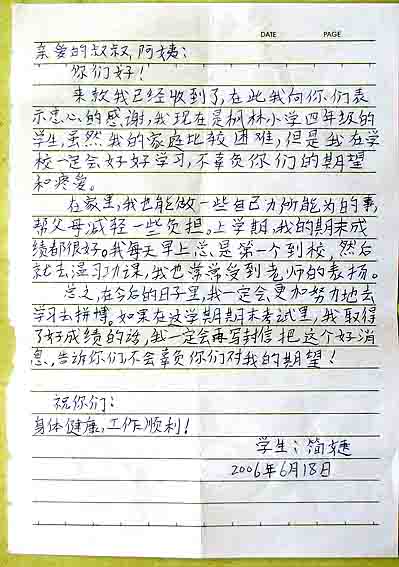 DATE PAGE
亲爱的叔叔,阿姨:
你们好!
来款我已经收到了,在此我向你们表
示忠心的感谢,我现在是枫林小学四年级的
学生,虽然我的家庭比较困难,但是我在学
校一定会好好学习,不辜负你们的期望
和疼爱。
在家里,我也能做一些自己力所能为的事,
帮父母减轻一些负担。上学期,我的期末成
绩都很好。我每天早上总是第一个到校,然后
就去温习功课,我也常常受到老师的表扬。
总之,在今后的日子里,我一定会更加努力地去
学习去拼博。如果在这学期期末考试里,我取得
了好成绩的话,我一定会再写封信把这个好消
息,告诉你们,不会辜负你们对我的期望!
祝你们:
身体健康,工作顺利!
学生:简
2006年6月18日